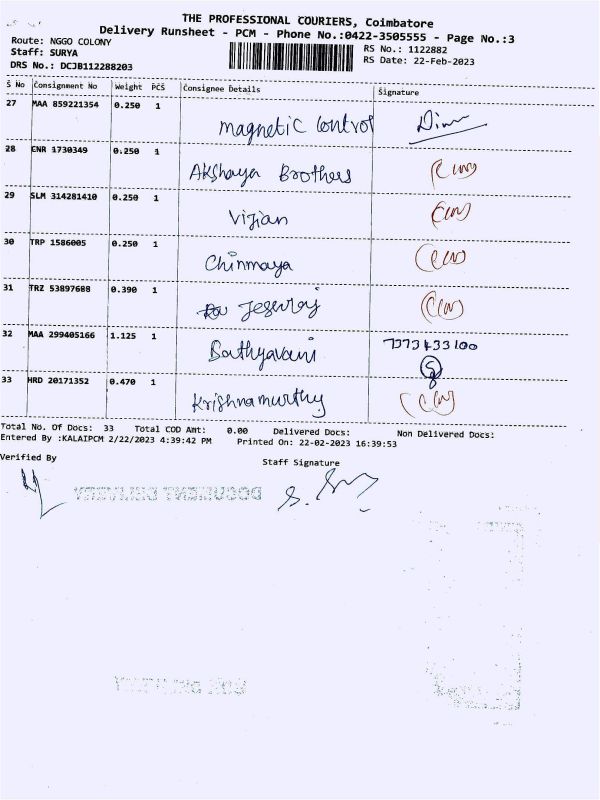 THE PROFESSIONAL COURIERS, Coimbatore
Delivery Runsheet - PCM - Phone No.:0422-3505555 - Page No.:3
Route: NGGO COLONY
Staff: SURYA
DRS No.: DCJB112288203
RS No.: 1122882
RS Date: 22-Feb-2023
S No Consignment No Weight PCS Consignee Details Signature
27 MAA 859221354 0.250 1 Magnetic Control
28 CNR 1730349 0.250 1 Akshaya Brothers
29 SLM 314281410 0.250 1 Vijian
30 TRP 1586005 0.250 1 Chinmaya
31 TRZ 53897688 0.390 1 Jeswraj
32 MAA 299405166 1.125 1 Sathyavani 7373433100
33 HRD 20171352 0.470 1 Krishnamurthy
Total No. Of Docs: 33 Total COD Amt: 0.00 Delivered Docs: Non Delivered Docs:
Entered By :KALAIPCM 2/22/2023 4:39:42 PM Printed On: 22-02-2023 16:39:53
Verified By Staff Signature
DOCUMENT DELIVERY